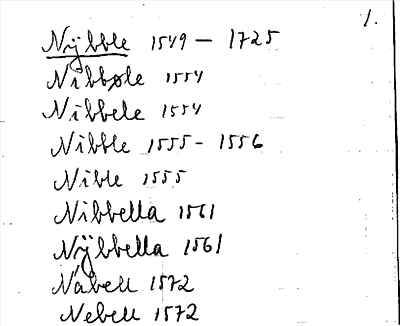 1.
Nÿbble 1549 – 1725
Nibbole 1554
Nibbele 1554
Nibble 1555 – 1556
Nible 1555
Nibbella 1561
Nÿbbella 1561
Nabell 1572
Nebell 1572